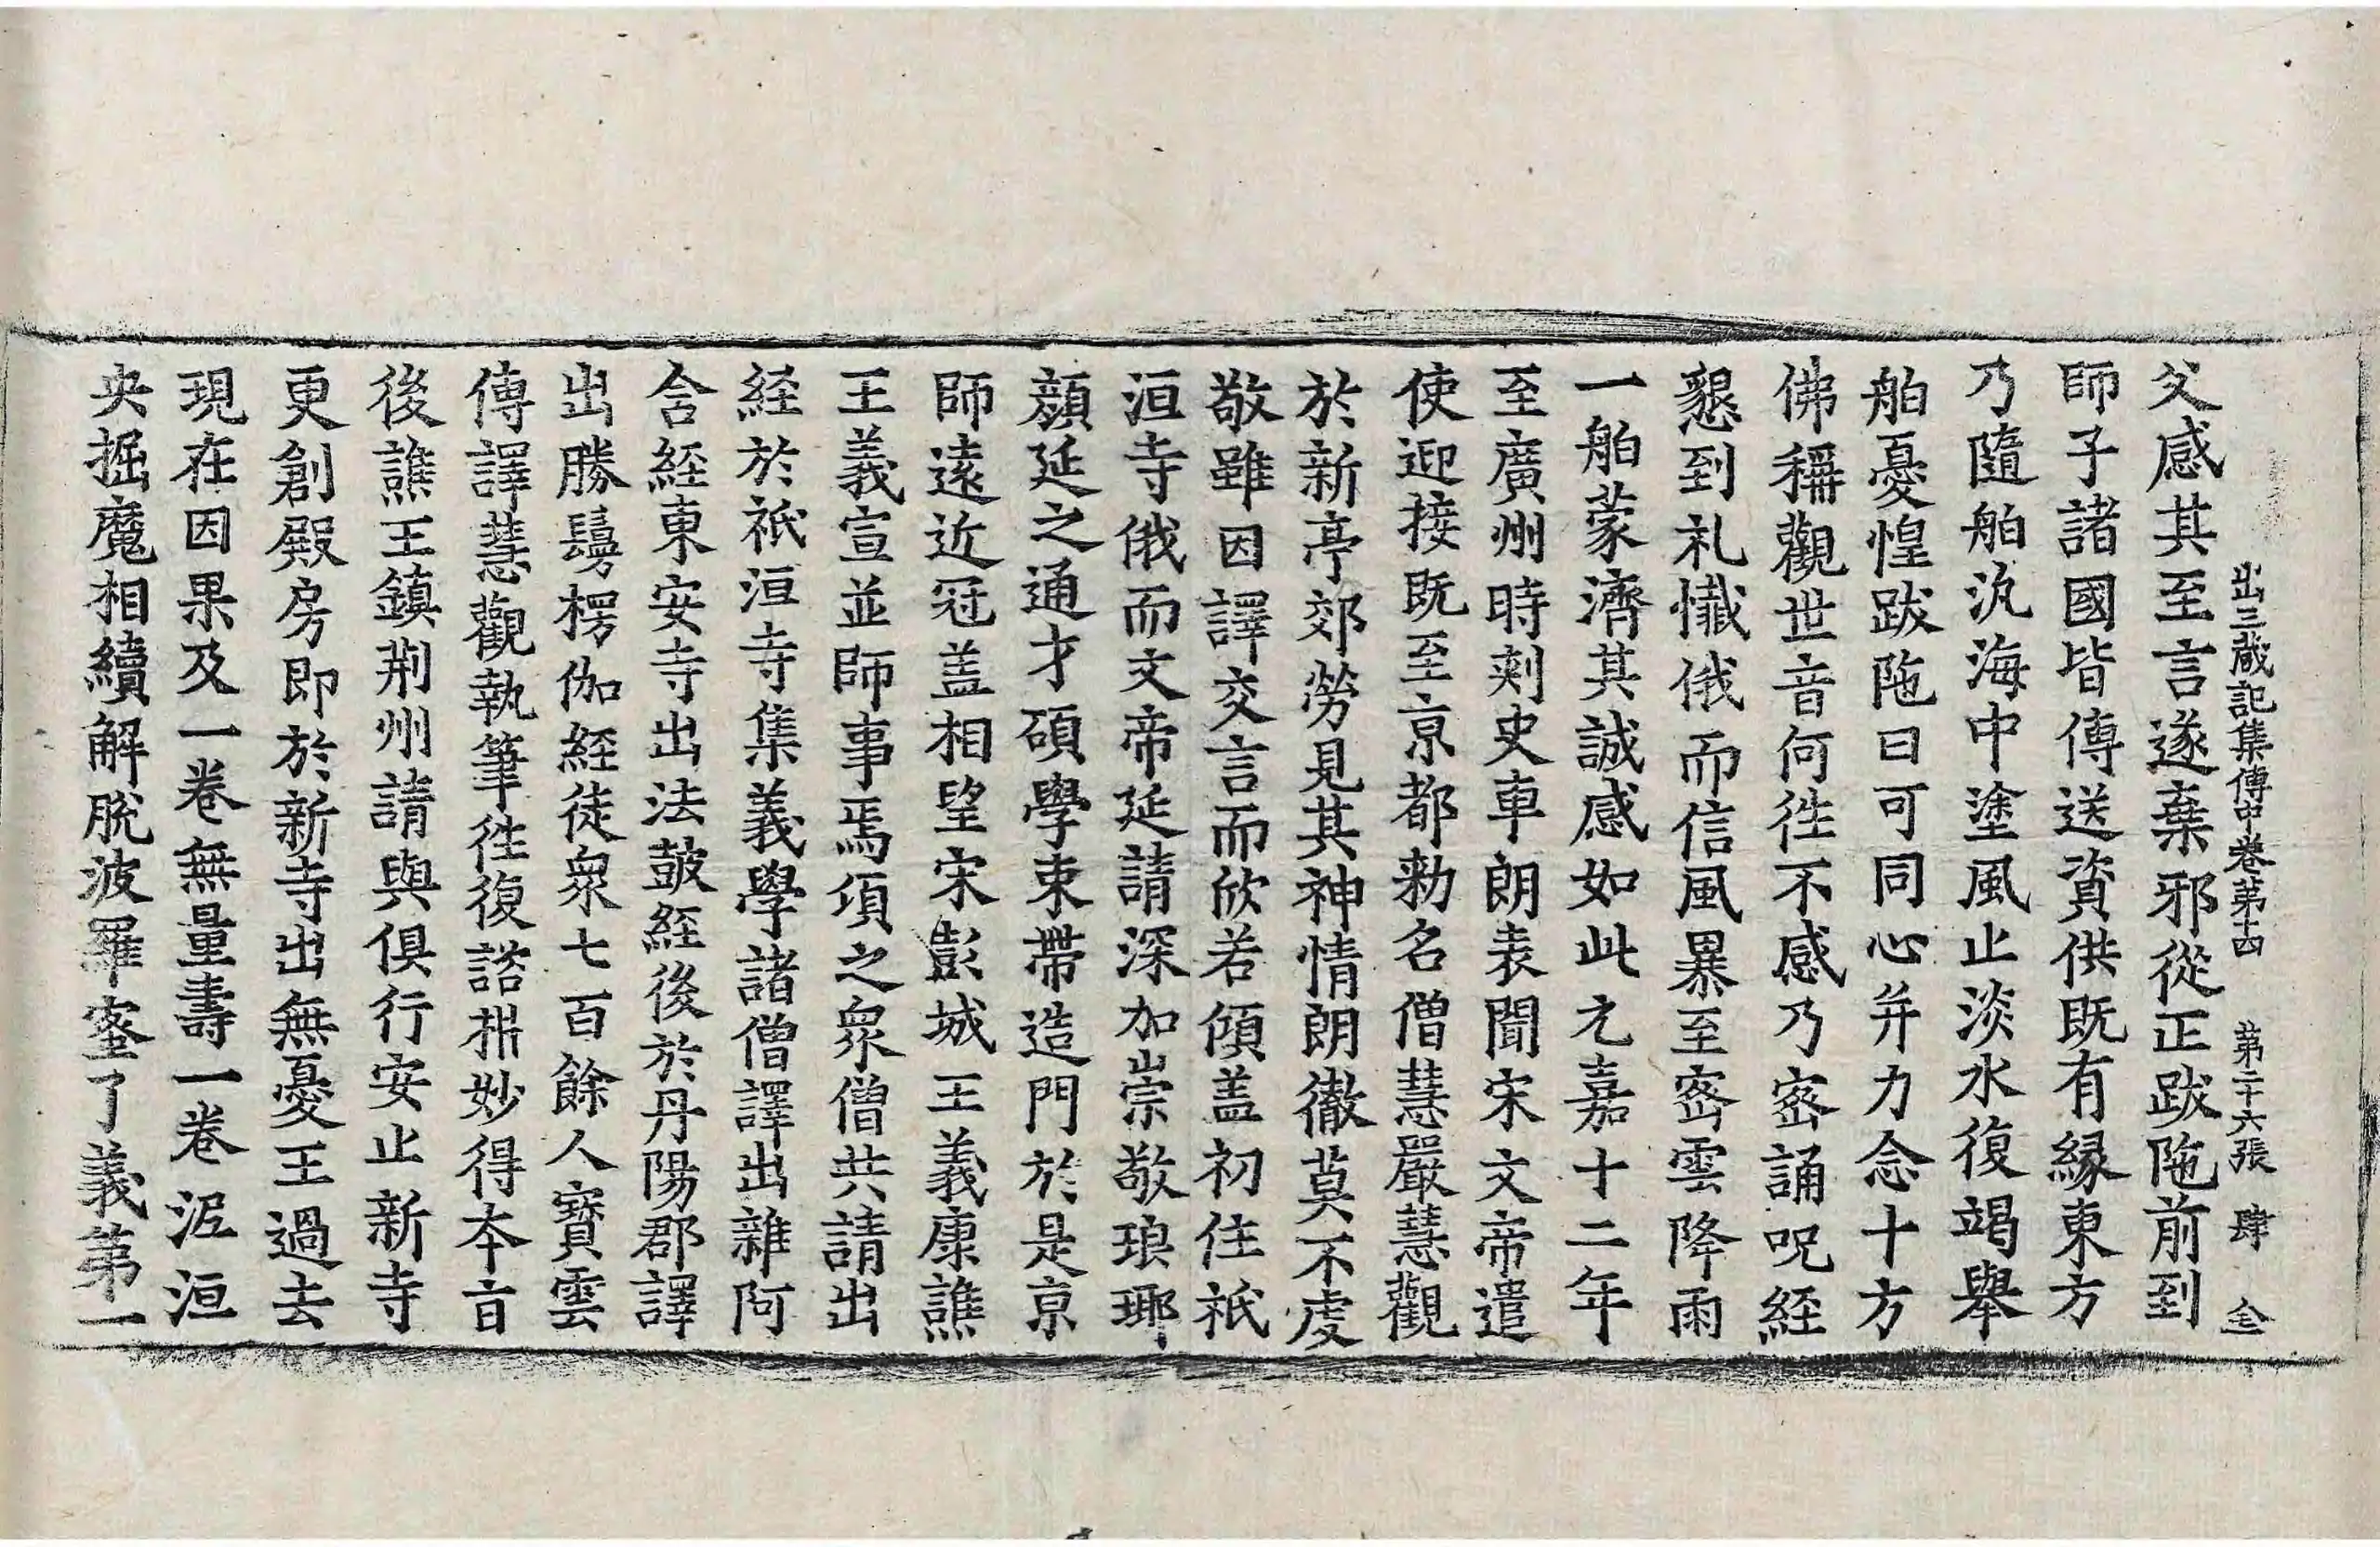 出三蔵記集傳中卷第十四　第二十六張　肆　仝
父感其至言遂棄邪從正跋陁前到
師子諸國皆傳送資供既有縁東方
乃隨舶汎海中塗風止淡水復竭舉
舶憂惶跋陁曰可同心并力念十方
佛稱觀世音何徃不感乃宻誦呪經
懇到礼懺俄而信風暴至宻雲降雨
一舶蒙濟其誠感如此元嘉十二年
至廣州時刾史車朗表聞宋文帝遣
使迎接既至亰都勑名僧慧嚴慧觀
於新亭郊勞見其神情朗徹莫不虔
敬雖因譯交言而欣若傾盖初住祇
洹寺俄而文帝延請深加崇敬琅瑘
顔延之通才碩學束帶造門於是亰
師遠近冠盖相望宋彭城王義康譙
王義宣並師事焉頃之衆僧共請出
経於祇洹寺集義學諸僧譯出雜阿
含経東安寺出法鼓経後於丹陽郡譯
出勝鬘楞伽経徒衆七百餘人寶雲
傳譯慧觀執筆徃復諮析妙得本音
後譙王鎮荆州請與俱行安止新寺
更創殿房即於新寺出無憂王過去
現在因果及一卷無量壽一卷泥洹
央掘魔相續解脱波羅蜜了義第一